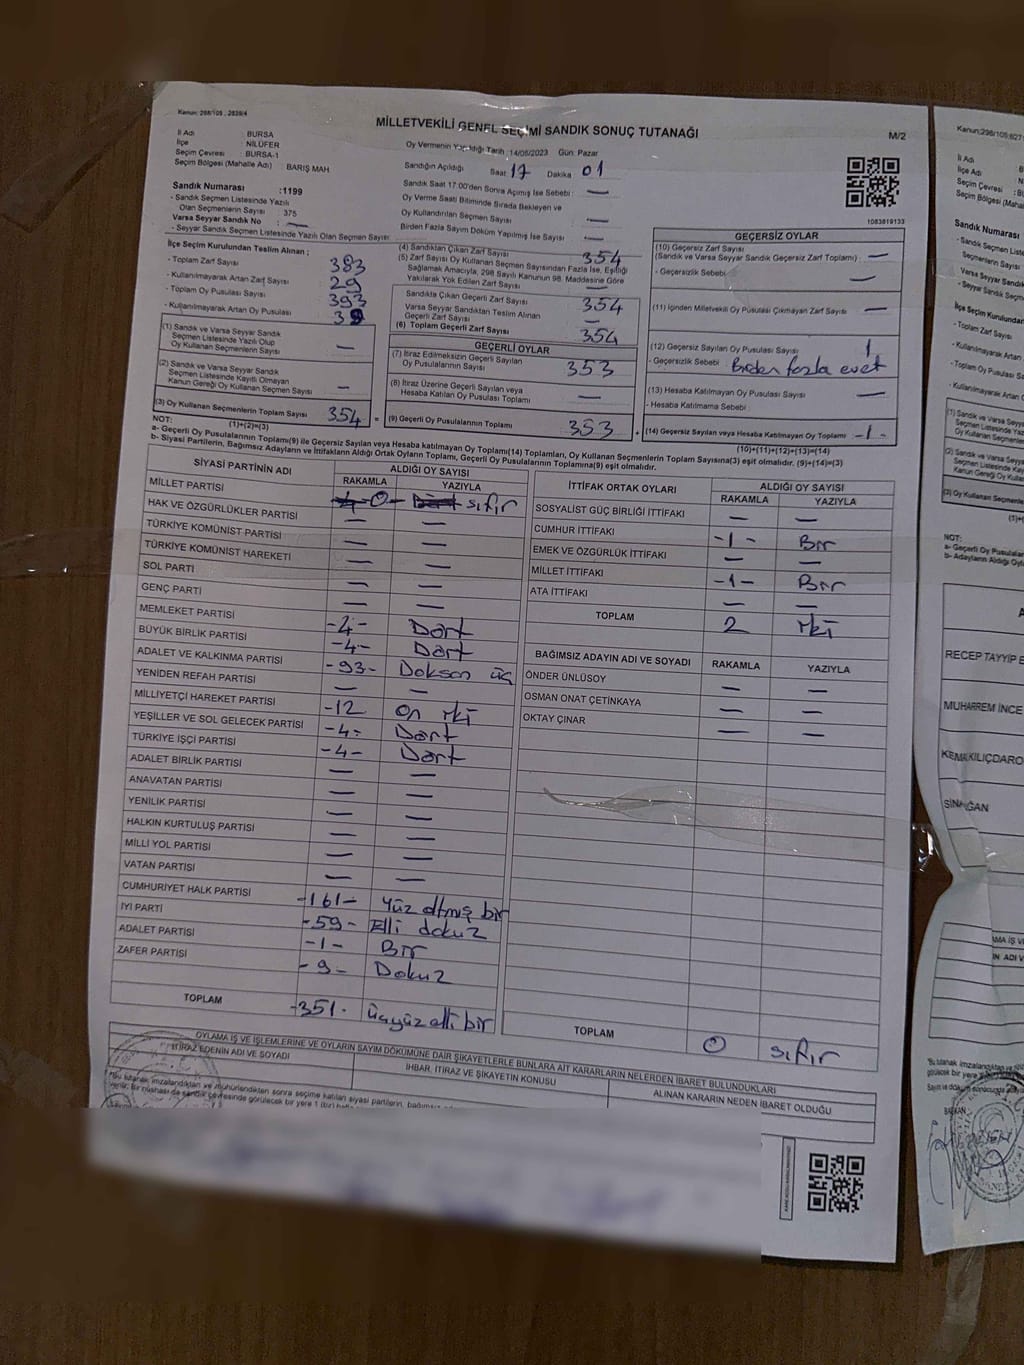 Kanun: 298/105 , 2839/4
MİLLETVEKİLİ GENEL SEÇİMİ SANDIK SONUÇ TUTANAĞI
M/2
İl Adı : BURSA
İlçe : NİLÜFER
Seçim Çevresi : BURSA-1
Seçim Bölgesi (Mahalle Adı) : BARIŞ MAH
Sandık Numarası :1199
- Sandık Seçmen Listesinde Yazılı
Olan Seçmenlerin Sayısı 375
Varsa Seyyar Sandık No : —
- Seyyar Sandık Seçmen Listesinde Yazılı Olan Seçmen Sayısı
Oy Vermenin Yapıldığı Tarih :14/05/2023 Gün: Pazar
Sandığın Açıldığı Saat 17 Dakika 01
Sandık Saat 17:00'den Sonra Açımış İse Sebebi : —
Oy Verme Saati Bitiminde Sırada Bekleyen ve
Oy Kullandırılan Seçmen Sayısı : —
Birden Fazla Sayım Döküm Yapılmış İse Sayısı : —
1083819133
İlçe Seçim Kurulundan Teslim Alınan ;
- Toplam Zarf Sayısı : 383
- Kullanılmayarak Artan Zarf Sayısı : 29
- Toplam Oy Pusulası Sayısı : 393
- Kullanılmayarak Artan Oy Pusulası : 39
(1) Sandık ve Varsa Seyyar Sandık
Seçmen Listesinde Yazılı Olup
Oy Kullanan Seçmenlerin Sayısı —
(2) Sandık ve Varsa Seyyar Sandık
Seçmen Listesinde Kayıtlı Olmayan
Kanun Gereği Oy Kullanan Seçmen Sayısı —
(3) Oy Kullanan Seçmenlerin Toplam Sayısı 354 =
(1)+(2)=(3)
(4) Sandıktan Çıkan Zarf Sayısı : 354
(5) Zarf Sayısı Oy Kullanan Seçmen Sayısından Fazla İse, Eşitliği
Sağlamak Amacıyla, 298 Sayılı Kanunun 98. Maddesine Göre
Yakılarak Yok Edilen Zarf Sayısı : —
Sandıkta Çıkan Geçerli Zarf Sayısı 354
Varsa Seyyar Sandıktan Teslim Alınan
Geçerli Zarf Sayısı —
(6) Toplam Geçerli Zarf Sayısı 354
GEÇERLİ OYLAR
(7) İtiraz Edilmeksizin Geçerli Sayılan
Oy Pusulalarının Sayısı: 353
(8) İtiraz Üzerine Geçerli Sayılan veya
Hesaba Katılan Oy Pusulası Toplamı —
(9) Geçerli Oy Pusulalarının Toplamı 353 +
GEÇERSİZ OYLAR
(10) Geçersiz Zarf Sayısı
(Sandık ve Varsa Seyyar Sandık Geçersiz Zarf Toplamı) : —
- Geçersizlik Sebebi : —
(11) İçinden Milletvekili Oy Pusulası Çıkmayan Zarf Sayısı : —
(12) Geçersiz Sayılan Oy Pusulası Sayısı : 1
- Geçersizlik Sebebi : Birden fazla evet
(13) Hesaba Katılmayan Oy Pusulası Sayısı : —
- Hesaba Katılmama Sebebi :
(14) Geçersiz Sayılan veya Hesaba Katılmayan Oy Toplamı -1-
(10)+(11)+(12)+(13)=(14)
NOT:
a- Geçerli Oy Pusulalarının Toplamı(9) ile Geçersiz Sayılan veya Hesaba katılmayan Oy Toplamı(14) Toplamları, Oy Kullanan Seçmenlerin Toplam Sayısına(3) eşit olmalıdır. (9)+(14)=(3)
b- Siyasi Partilerin, Bağımsız Adayların ve İttifakların Aldığı Ortak Oyların Toplamı, Geçerli Oy Pusulalarının Toplamına(9) eşit olmalıdır.
SİYASİ PARTİNİN ADI ALDIĞI OY SAYISI
RAKAMLA YAZIYLA
MİLLET PARTİSİ -0- sıfır
HAK VE ÖZGÜRLÜKLER PARTİSİ — —
TÜRKİYE KOMÜNİST PARTİSİ — —
TÜRKİYE KOMÜNİST HAREKETİ — —
SOL PARTİ — —
GENÇ PARTİ — —
MEMLEKET PARTİSİ -4- Dört
BÜYÜK BİRLİK PARTİSİ -4- Dört
ADALET VE KALKINMA PARTİSİ -93- Doksan üç
YENİDEN REFAH PARTİSİ — —
MİLLİYETÇİ HAREKET PARTİSİ -12 On iki
YEŞİLLER VE SOL GELECEK PARTİSİ -4- Dört
TÜRKİYE İŞÇİ PARTİSİ -4- Dört
ADALET BİRLİK PARTİSİ — —
ANAVATAN PARTİSİ — —
YENİLİK PARTİSİ — —
HALKIN KURTULUŞ PARTİSİ — —
MİLLİ YOL PARTİSİ — —
VATAN PARTİSİ — —
CUMHURİYET HALK PARTİSİ -161- Yüz altmış bir
İYİ PARTİ -59- Elli dokuz
ADALET PARTİSİ -1- Bir
ZAFER PARTİSİ -9- Dokuz
TOPLAM -351- Üçyüz elli bir
İTTİFAK ORTAK OYLARI ALDIĞI OY SAYISI
RAKAMLA YAZIYLA
SOSYALİST GÜÇ BİRLİĞİ İTTİFAKI — —
CUMHUR İTTİFAKI -1- Bir
EMEK VE ÖZGÜRLÜK İTTİFAKI — —
MİLLET İTTİFAKI -1- Bir
ATA İTTİFAKI — —
TOPLAM 2 iki
BAĞIMSIZ ADAYIN ADI VE SOYADI RAKAMLA YAZIYLA
ÖNDER ÜNLÜSOY — —
OSMAN ONAT ÇETİNKAYA — —
OKTAY ÇINAR — —
TOPLAM 0 sıfır
OYLAMA İŞ VE İŞLEMLERİNE VE OYLARIN SAYIM DÖKÜMÜNE DAİR ŞİKAYETLERLE BUNLARA AİT KARARLARIN NELERDEN İBARET BULUNDUKLARI
İTİRAZ EDENİN ADI VE SOYADI
İHBAR, İTİRAZ VE ŞİKAYETİN KONUSU
ALINAN KARARIN NEDEN İBARET OLDUĞU
"Bu tutanak imzalandıktan ve mühürlendikten sonra seçime katılan siyasi partilerin, bağımsız
Kanun:298/105;627
İl Adı
İlçe Adı
Seçim Çevresi
Seçim Bölgesi (Maha
Sandık Numarası
- Sandık Seçmen
Seçmenlerin Sayısı
Varsa Seyyar
- Seyyar Sandık
İlçe Seçim Kurulundan
- Toplam Zarf
- Kullanılmayarak
- Toplam Oy Pusulası
- Kullanılmayarak Artan O
NOT:
a- Geçerli Oy Pusulaları
b- Adayların Aldığı Oyl
RECEP TAYYİP E
MUHARREM İNCE
KEMAL KILIÇDARO
SİNAN OĞAN
BAŞKAN